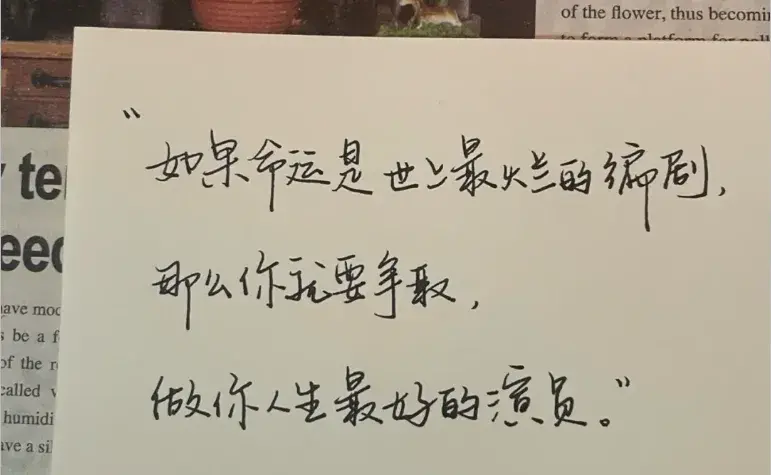 of the flower, thus becomin
to form a platform for poll
"如果命运是世上最烂的编剧,
那么你就要争取,
做你人生最好的演员。"
te
eed
have mod
s be a f
of the r
called v
humidi
ave a sil